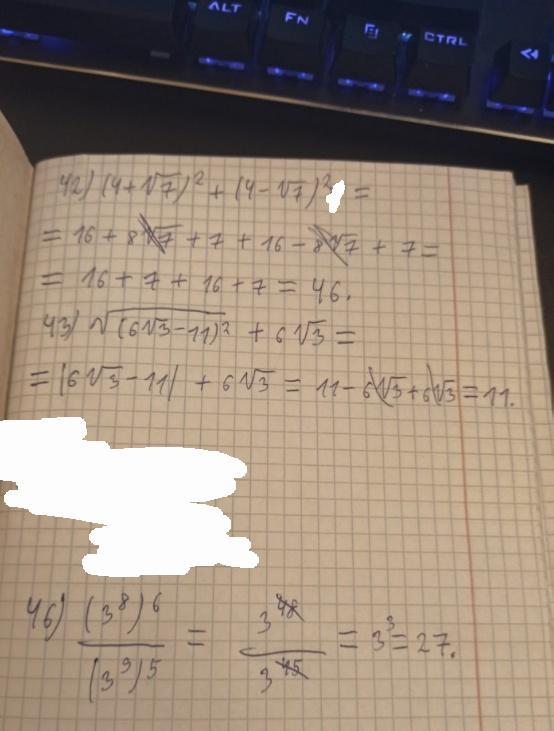 ALT FN CTRL
42) (4+√7)² + (4-√7)² =
= 16 + 8√7 + 7 + 16 - 8√7 + 7 =
= 16 + 7 + 16 + 7 = 46.
43) √(6√3-11)² + 6√3 =
= |6√3-11| + 6√3 = 11-6√3+6√3 = 11.
46) (3⁸)⁶/(3⁹)⁵ = 3⁴⁸/3⁴⁵ = 3³ = 27.